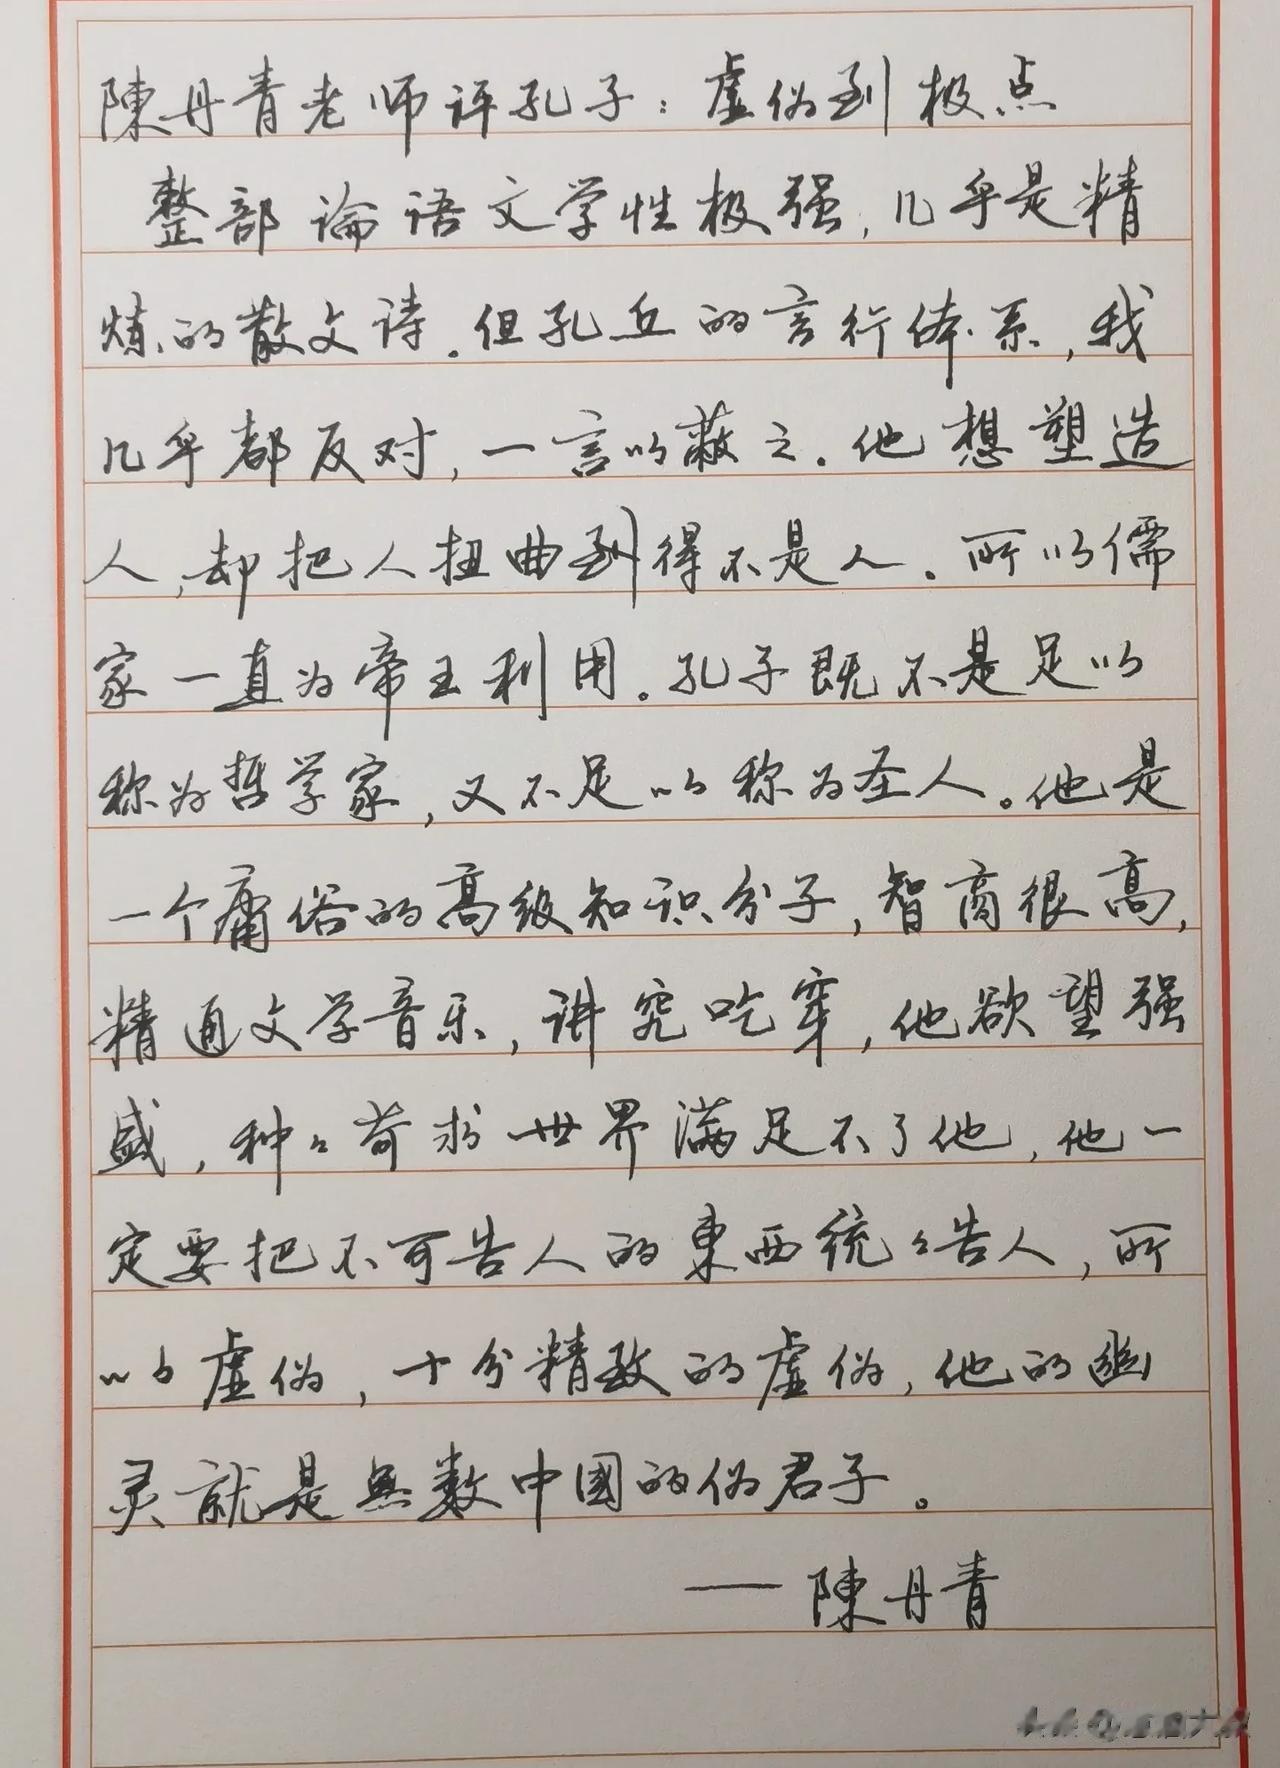 陳丹青老师评孔子：虚伪到极点
整部論语文学性极强，几乎是精
炼的散文诗．但孔丘的言行体系，我
几乎都反对，一言以蔽之．他想塑造
人，却把人扭曲到得不是人．所以儒
家一直为帝王利用．孔子既不是足以
称为哲学家，又不足以称为圣人。他是
一个庸俗的高级知识分子，智商很高，
精通文学音乐，讲究吃穿，他欲望强
盛，种々苛求世界满足不了他，他一
定要把不可告人的東西统々告人，所
以虚伪，十分精致的虚伪，他的幽
灵就是無数中國的伪君子。
——陳丹青